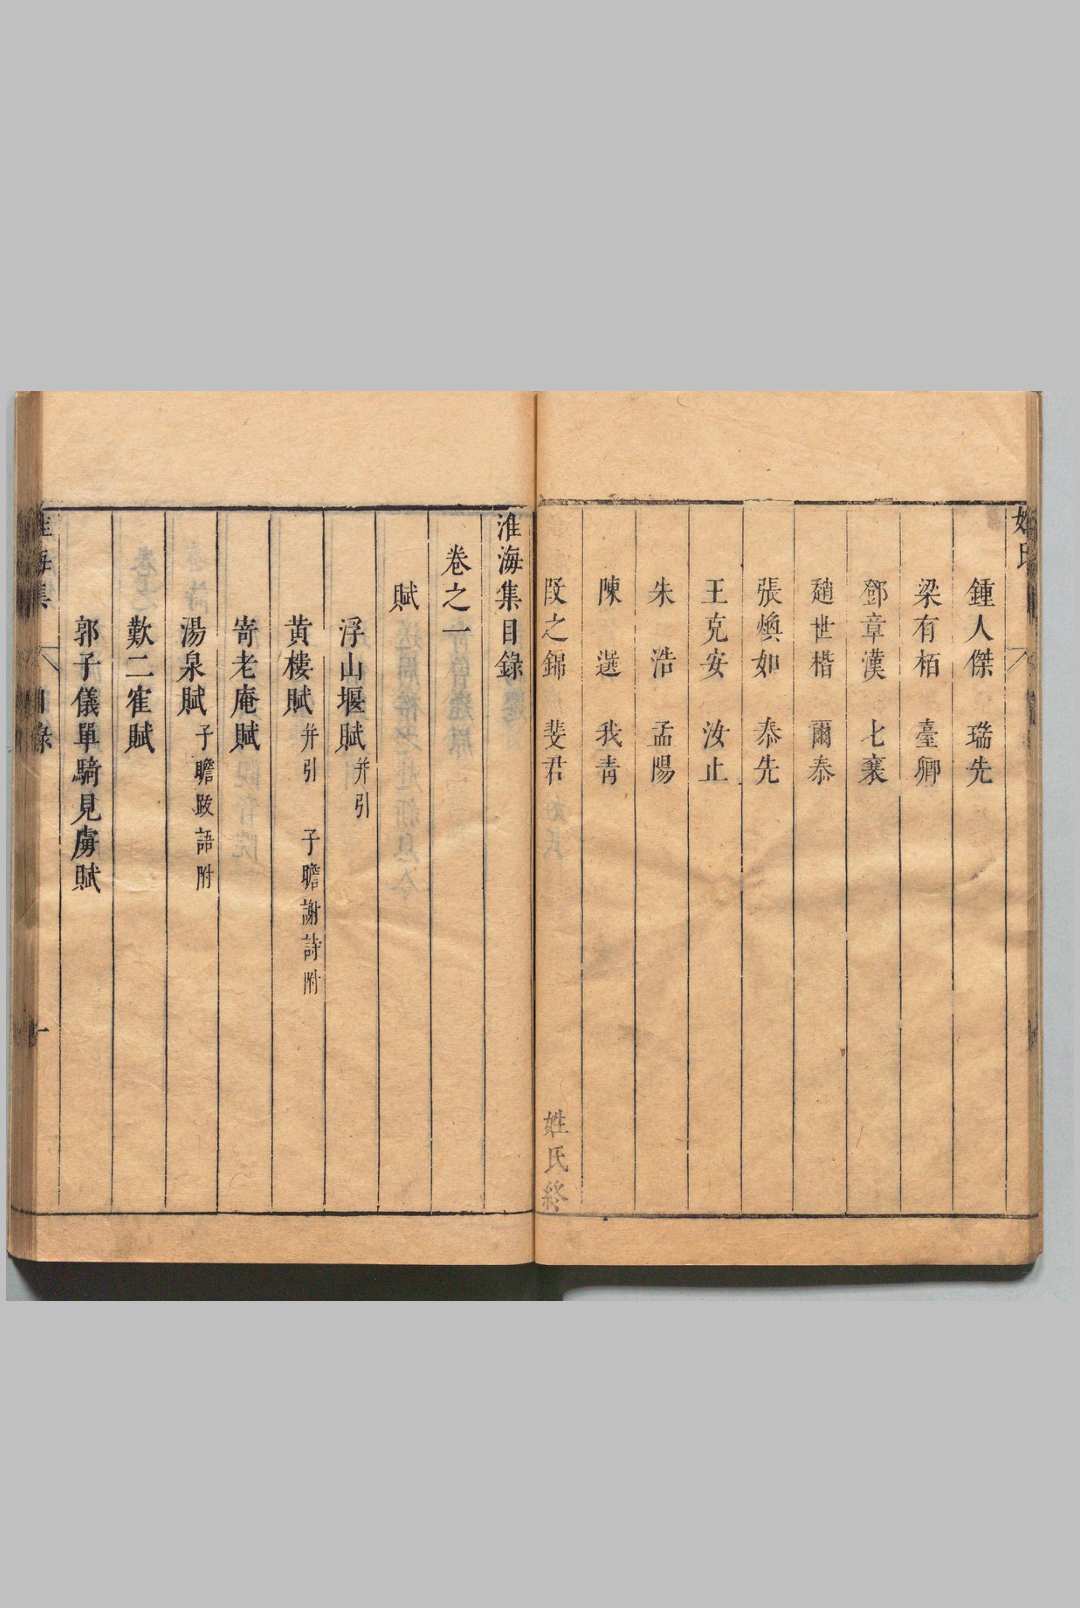 姓氏
鍾人傑　瑞先
梁有栢　臺卿
鄧章漢　七襄
趙世楷　爾泰
張煥如　泰先
王克安　汝止
朱　浩　孟陽
陳　選　我青
段之錦　斐君
姓氏終
淮海集目錄
卷之一
賦
浮山堰賦并引
黃樓賦并引　子瞻謝詩附
寄老庵賦
湯泉賦子瞻跋語附
歎二隺賦
郭子儀單騎見虜賦
淮海集　目錄　一